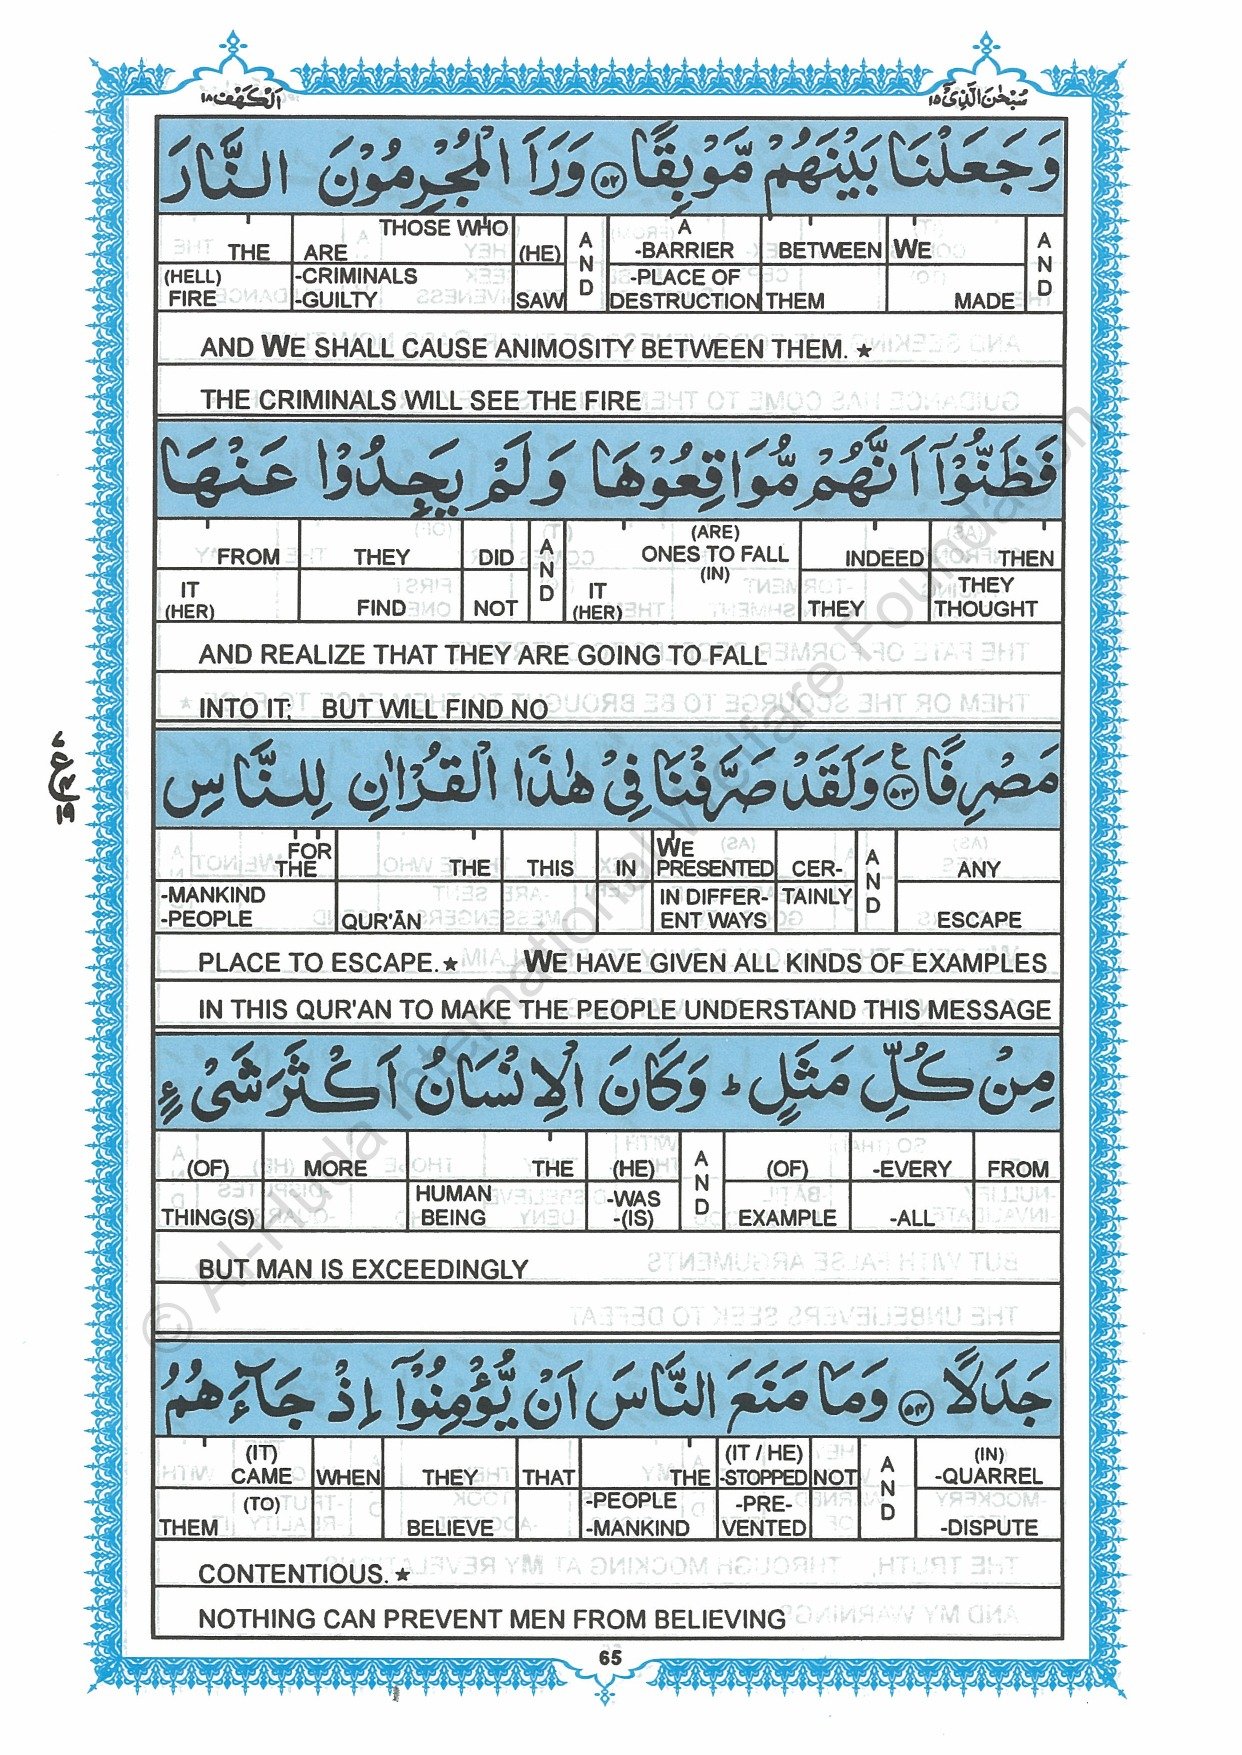 سُبْحٰنَ الَّذِیْۤ ۱۵
اَلْكَهْف ۱۸
وَجَعَلْنَا بَيْنَهُمْ مَّوْبِقًا ۵۲ وَرَاَ الْمُجْرِمُوْنَ النَّارَ
THE ARE THOSE WHO (HE) AND A -BARRIER BETWEEN WE AND
(HELL) FIRE -CRIMINALS -GUILTY SAW -PLACE OF DESTRUCTION THEM MADE
AND WE SHALL CAUSE ANIMOSITY BETWEEN THEM. ★
THE CRIMINALS WILL SEE THE FIRE
فَظَنُّوْۤا اَنَّهُمْ مُّوَاقِعُوْهَا وَلَمْ يَجِدُوْا عَنْهَا
FROM THEY DID AND (ARE) ONES TO FALL (IN) INDEED THEN
IT (HER) FIND NOT IT (HER) THEY THEY THOUGHT
AND REALIZE THAT THEY ARE GOING TO FALL
INTO IT; BUT WILL FIND NO
مَصْرِفًا ۵۳ ع وَلَقَدْ صَرَّفْنَا فِیْ هٰذَا الْقُرْاٰنِ لِلنَّاسِ
FOR THE THE THIS IN WE PRESENTED CER- AND ANY
-MANKIND -PEOPLE QUR'ĀN IN DIFFER- ENT WAYS TAINLY ESCAPE
PLACE TO ESCAPE. ★ WE HAVE GIVEN ALL KINDS OF EXAMPLES
IN THIS QUR'AN TO MAKE THE PEOPLE UNDERSTAND THIS MESSAGE
مِنْ كُلِّ مَثَلٍ ؕ وَكَانَ الْاِنْسَانُ اَكْثَرَ شَیْءٍ
(OF) MORE THE (HE) AND (OF) -EVERY FROM
THING(S) HUMAN BEING -WAS -(IS) EXAMPLE -ALL
BUT MAN IS EXCEEDINGLY
جَدَلًا ۵۴ وَمَا مَنَعَ النَّاسَ اَنْ يُّؤْمِنُوْۤا اِذْ جَآءَهُمُ
(IT) CAME WHEN THEY THAT THE (IT / HE) -STOPPED NOT AND (IN) -QUARREL
THEM (TO) BELIEVE -PEOPLE -MANKIND -PRE- VENTED -DISPUTE
CONTENTIOUS. ★
NOTHING CAN PREVENT MEN FROM BELIEVING
65
© Al-Huda International Welfare Foundation